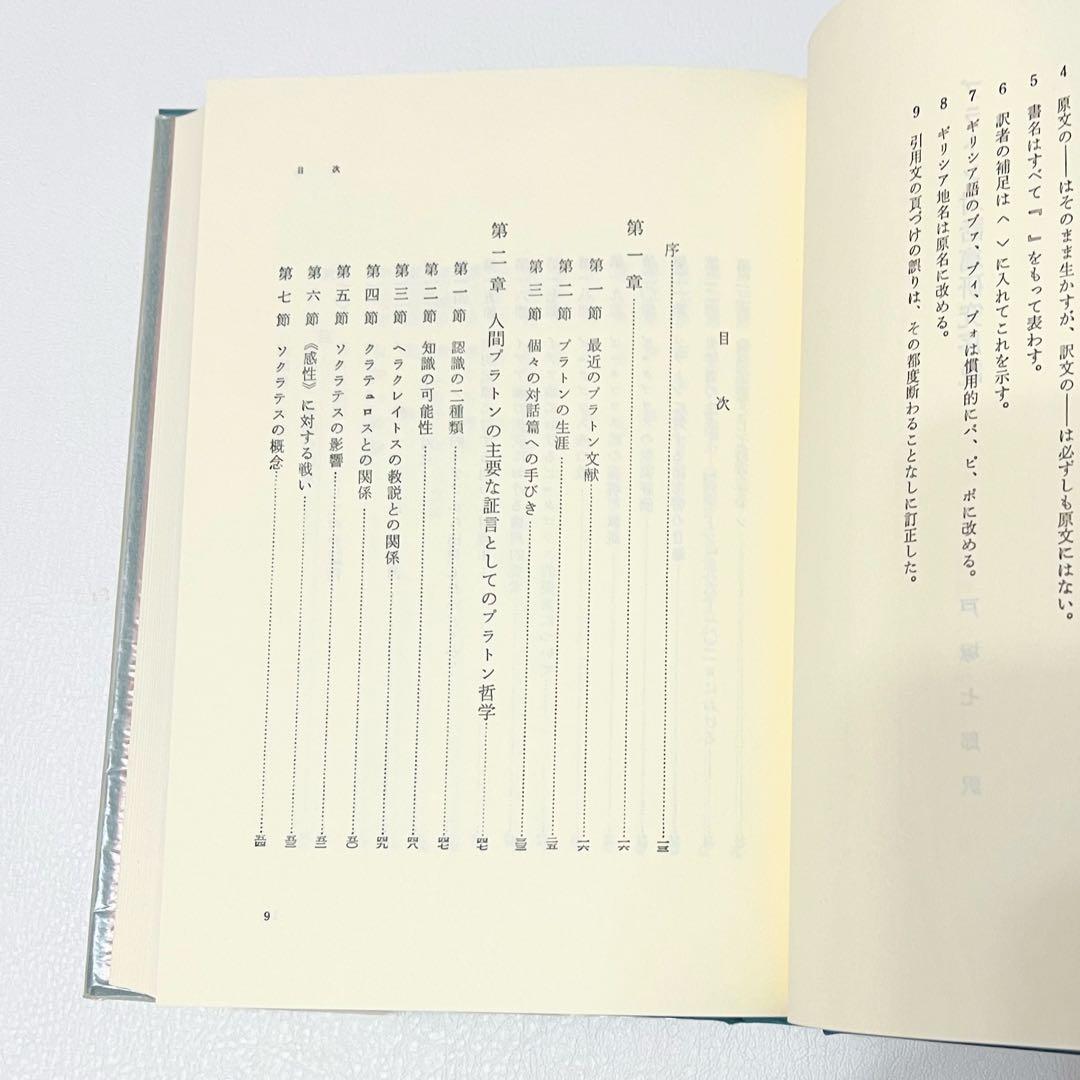 4 原文の――はそのまま生かすが、訳文の――は必ずしも原文にはない。
5 書名はすべて『 』をもって表わす。
6 訳者の補足は〈 〉に入れてこれを示す。
7 ギリシア語のファ、フィ、フォは慣用的にパ、ピ、ポに改める。
8 ギリシア地名は原名に改める。
9 引用文の頁づけの誤りは、その都度断わることなしに訂正した。
目次
目次
序……一三
第一章……一六
第一節 最近のプラトン文献……一六
第二節 プラトンの生涯……二五
第三節 個々の対話篇への手びき……三三
第二章 人間プラトンの主要な証言としてのプラトン哲学……四七
第一節 認識の二種類……四七
第二節 知識の可能性……四八
第三節 ヘラクレイトスの教説との関係……四九
第四節 クラテュロスとの関係……五〇
第五節 ソクラテスの影響……五二
第六節 《感性》に対する戦い……五三
第七節 ソクラテスの概念……五四
9